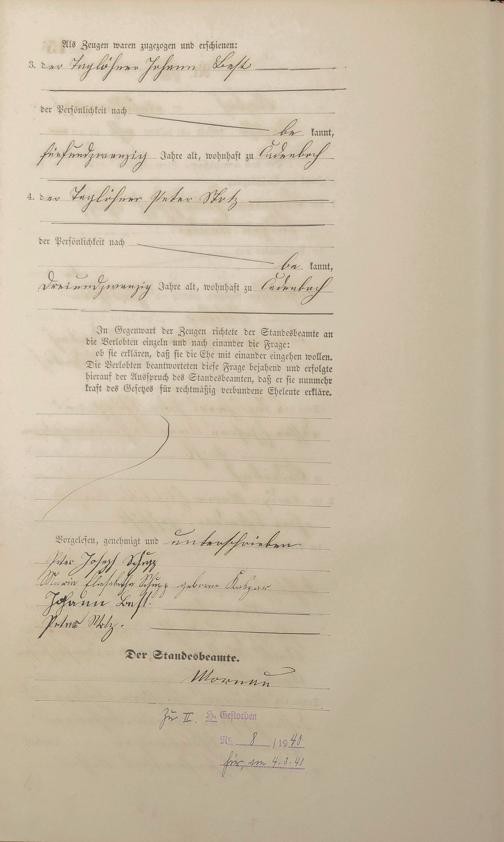 Als Zeugen waren zugezogen und erschienen:
3. der Taglöhner Johann Best
der Persönlichkeit nach
be kannt,
fünfundzwanzig Jahre alt, wohnhaft zu Cadenbach
4. der Taglöhner Peter Metz
der Persönlichkeit nach
be kannt,
dreiundzwanzig Jahre alt, wohnhaft zu Cadenbach
In Gegenwart der Zeugen richtete der Standesbeamte an
die Verlobten einzeln und nach einander die Frage:
ob sie erklären, daß sie die Ehe mit einander eingehen wollen.
Die Verlobten beantworteten diese Frage bejahend und erfolgte
hierauf der Ausspruch des Standesbeamten, daß er sie nunmehr
kraft des Gesetzes für rechtmäßig verbundene Eheleute erkläre.
Vorgelesen, genehmigt und unterschrieben
Peter Joseph Schupp
Maria Elisabetha Schupp geborene Kaspar
Johann Best.
Peter Metz.
Der Standesbeamte.
Zu II. Gestorben
Nr. 8 / 1941
4.3.41